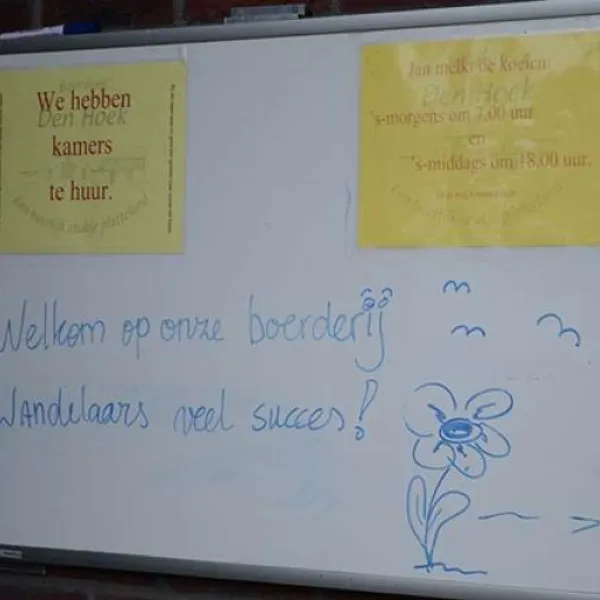 We hebben
Den Hoek
kamers
te huur.
Een heerlijk stukje platteland
Jan melkt de koeien:
Den Hoek
's-morgens om 7.00 uur
en
's-middags om 18.00 uur.
Welkom op onze boerderij
Wandelaars veel succes!